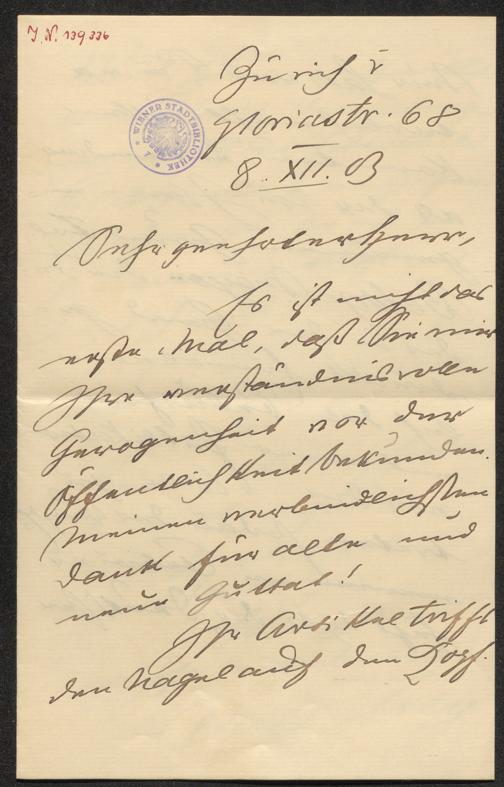 J. N. 139336
WIENER STADTBIBLIOTHEK
Zürich V
Gloriastr. 68
8. XII. 03
Sehr geehrter Herr,
Es ist nicht das
erste Mal, daß Sie mir
Ihre verständnisvolle
Gewogenheit vor der
Öffentlichkeit bekunden.
Meinen verbindlichsten
Dank für alte und
neue Guttat!
Ihr Artikel trifft
den Nagel auf den Kopf.